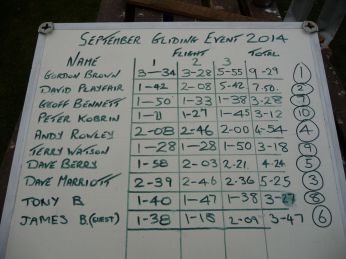 SEPTEMBER GLIDING EVENT 2014
NAME FLIGHT TOTAL
1 2 3
GORDON BROWN 3-34 3-28 5-55 9-29 1
DAVID PLAYFAIR 1-42 2-08 5-42 7.50 2
GEOFF BENNETT 1-50 1-33 1-38 3-28
PETER KOBRIN 1-27 1-45 3-12 10
ANDY ROWLEY 2-08 2-46 2-00 4-54 4
TERRY WATSON 1-28 1-28 1-50 3-18 9
DAVE BERRY 1-58 2-03 2-21 4-24 5
DAVE MARRIOTT 2-39 2-46 2-36 5-25 3
TONY B 1-40 1-47 1-38 3-27 8
JAMES B.(GUEST) 1-38 1-18 2-09 3-47 6